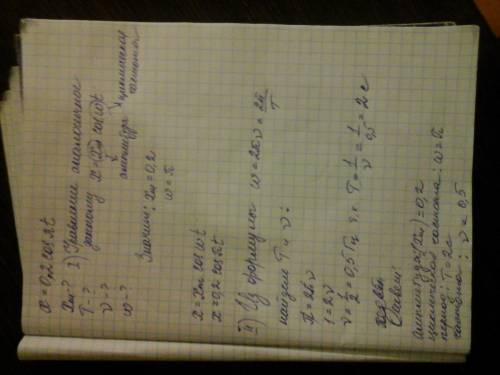 x = 0,2 cos πt
xм - ? I) Уравнение аналогичное
T - ? данному x = xм cos ωt
ν - ? амплитуда циклическая частота
ω - ?
Значит: xм = 0,2
ω = π
x = xм cos ωt
x = 0,2 cos πt
II) Из формулы ω = 2πν = 2π/T
найдём T и ν:
π = 2πν
1 = 2ν
ν = 1/2 = 0,5 Гц т.к. T = 1/ν = 1/0,5 = 2 с
Ответ:
амплитуда (xм) = 0,2
циклическая частота: ω = π
период: T = 2 с
частота: ν = 0,5